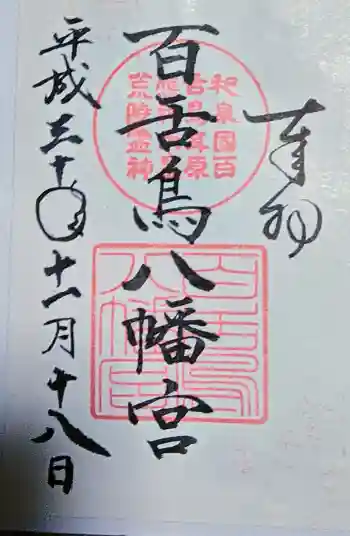 奉拝
百舌鳥八幡宮
平成三十年十一月十八日
和泉國百
舌鳥耳原
百舌鳥
八幡宮